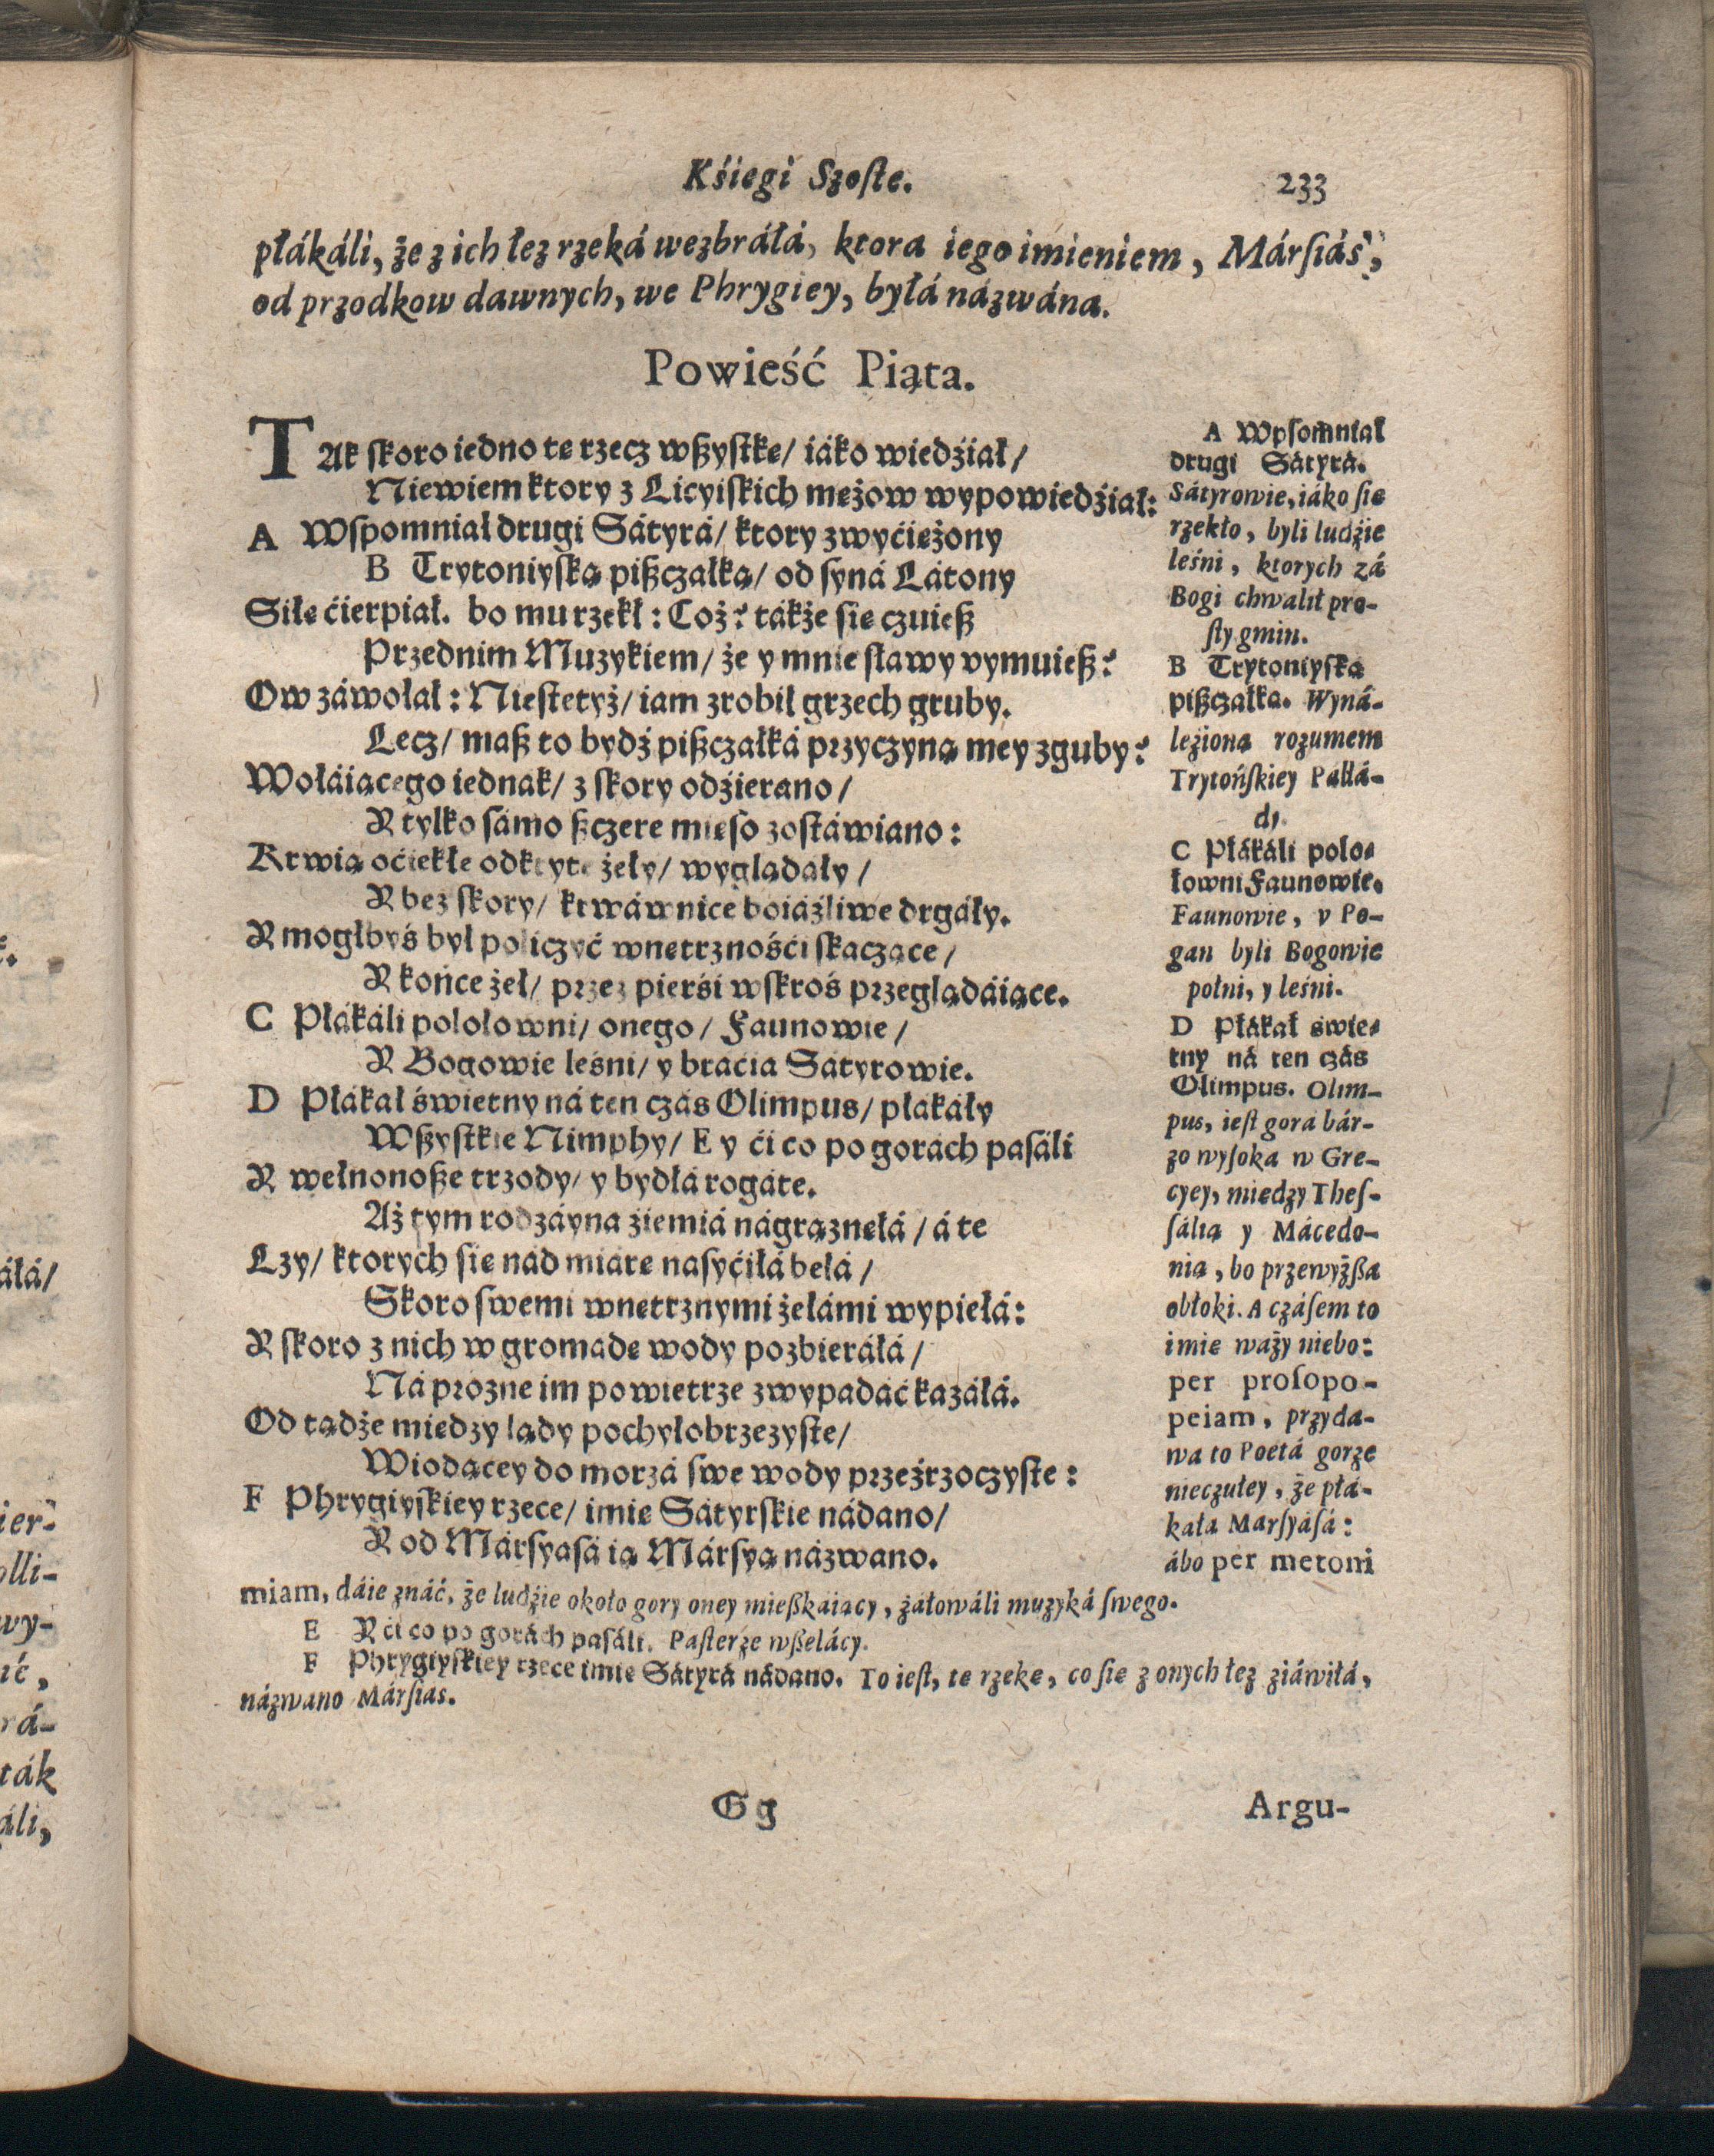 Kśiegi Szoſte.
233
płákáli, że z ich łez rzeká wezbráłá, ktora iego imieniem, Márſiás,
od przodkow dawnych, we Phrygiey, byłá názwána.
Powieść Piąta.
TAk ſkoro iedno te rzecz wßyſtke/ iáko wiedźiał/
Niewiem ktory z Licyiſkich meżow wypowiedźiał:
A Wſpomniał drugi Sátyrá/ ktory zwyćieżony
B Trytoniyſką pißczałką/ od ſyná Látony
Siłe ćierpiał. bo mu rzekł: Coż? tákże ſie czuieß
Przednim Muzykiem/ że y mnie ſławy vymuieß?
Ow záwołał: Nieſtetyż/ iam zrobił grzech gruby.
Lecz/ maß to bydź pißczałká przyczyną mey zguby?
Wołáiącego iednak/ z ſkory odźierano/
A tylko sámo ßczere mieſo zoſtáwiano:
Krwią oćiekłe odkryte żeły/ wyglądáły/
A bez ſkory/ krwáwnice boiáźliwe drgáły.
A mogłbyś był policzyć wnetrznośći ſkaczące/
A końce żeł/ przez pierśi wſkroś przeglądáiące.
C Płákáli pololowni/ onego/ Faunowie/
A Bogowie leśni/ y bráćia Sátyrowie.
D Płákał świetny ná ten czás Olimpus/ płákáły
Wßyſtkie Nimphy/ E y ći co po gorách paſáli
A wełnonoße trzody/ y bydłá rogáte.
Aż tym rodzáyna źiemiá nágrąznełá/ á te
Lzy/ ktorych ſie nád miáre náſyćiłá bełá/
Skoro ſwemi wnetrznymi żełámi wypiełá:
A ſkoro z nich w gromáde wody pozbieráłá/
Ná prozne im powietrze zwypádáć kazáłá.
Od tądże miedzy lądy pochyłobrzezyſte/
Wiodącey do morzá ſwe wody przeźrzoczyſte:
F Phrygiyſkiey rzece/ imie Sátyrſkie nádano/
A od Márſyaſá ią Márſyą názwano.
A Wpſomniał
drugi Sátyrá.
Sátyrowie, iáko ſie
rzekło, byli ludźie
leśni, ktorych zá
Bogi chwalił pro-
ſty gmin.
B Trytoniyſką
pißczałką. Wyná-
leźioną rozumem
Trytońſkiey Pallá-
dy.
C Płákáli polo-
łowni Faunowie.
Faunowie, v Po-
gan byli Bogowie
polni, y leśni.
D Płákał świe-
tny ná ten czás
Olimpus. Olim-
pus, ieſt gora bár-
zo wyſoka w Gre-
cyey, miedzy Theſ-
ſálią y Mácedo-
nią, bo przewyżßa
obłoki. A czáſem to
imie waży niebo:
per proſopo-
peiam, przyda-
wa to Poetá gorze
nieczułey, że płá-
kała Marſyáſá:
ábo per metoni
miam, dáie znáć, że ludźie około gory oney mießkaiący, żáłowáli muzyká ſwego.
E A ći co po gorách paſáli. Paſterze wßelácy.
F Phrygiyſkiey rzece imie Sátyrá nádano. To ieſt, te rzeke, co ſie z onych łez ziáwiłá,
názwano Márſias.
Gg
Argu-